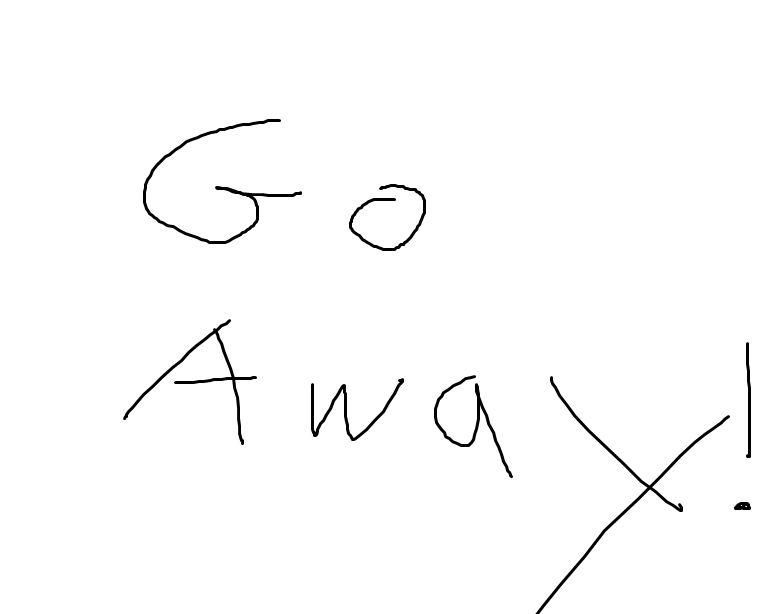 Go
Away!